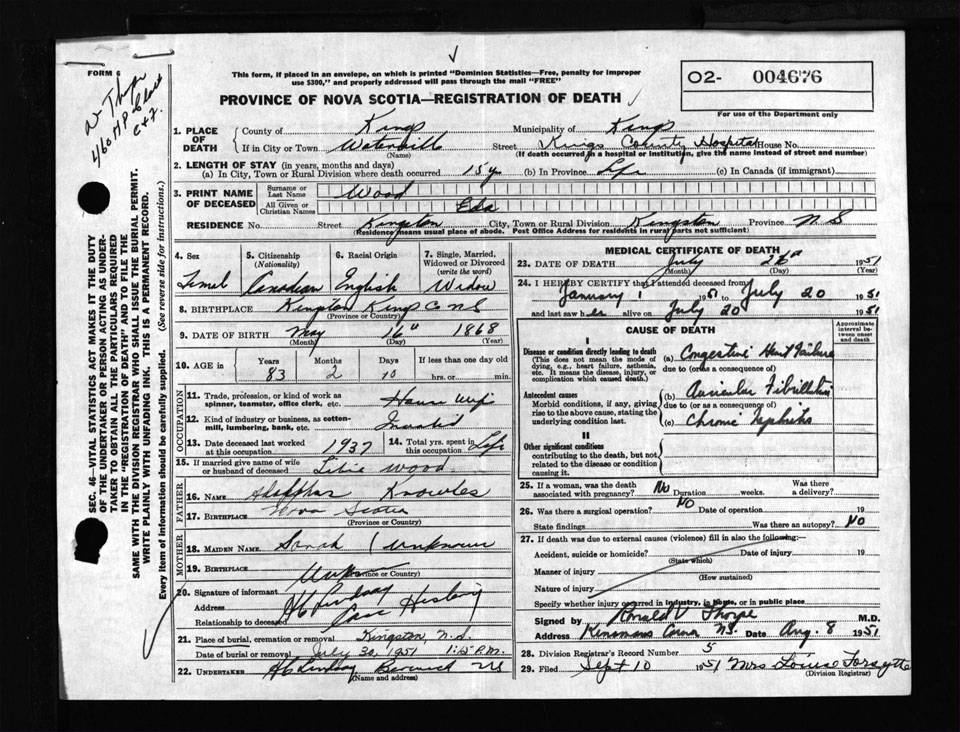 FORM 6
This form, if placed in an envelope, on which is printed "Dominion Statistics—Free, penalty for improper
use $300," and properly addressed will pass through the mail "FREE"
PROVINCE OF NOVA SCOTIA—REGISTRATION OF DEATH
02- 004676
For use of the Department only
W Thorpe
460 M.P. Class
SEC. 46—VITAL STATISTICS ACT MAKES IT THE DUTY
OF THE UNDERTAKER OR PERSON ACTING AS UNDER-
TAKER TO OBTAIN ALL THE PARTICULARS REQUIRED
IN THE "REGISTRATION OF DEATH" AND TO FILE THE
SAME WITH THE DIVISION REGISTRAR WHO SHALL ISSUE THE BURIAL PERMIT.
WRITE PLAINLY WITH UNFADING INK. THIS IS A PERMANENT RECORD.
Every item of information should be carefully supplied. (See reverse side for instructions.)
1. PLACE OF DEATH County of Kings Municipality of Kings
If in City or Town Waterville Street Kings County Hospital House No.
(Name) (If death occurred in a hospital or institution, give the name instead of street and number)
2. LENGTH OF STAY (in years, months and days)
(a) In City, Town or Rural Division where death occurred 15 y (b) In Province Life (c) In Canada (if immigrant)
3. PRINT NAME OF DECEASED Surname or Last Name Wood
All Given or Christian Names Eda
RESIDENCE No. Street Kingston City, Town or Rural Division Kingston Province N S
(Residence means usual place of abode. Post Office Address for residents in rural parts not sufficient)
4. Sex 5. Citizenship (Nationality) 6. Racial Origin 7. Single, Married, Widowed or Divorced (write the word)
Femel Canadian English Widow
8. BIRTHPLACE Kingston Kings Co NS
(Province or Country)
9. DATE OF BIRTH May 16th 1868
(Month) (Day) (Year)
10. AGE in Years Months Days If less than one day old
83 2 10 hrs. or min.
OCCUPATION
11. Trade, profession, or kind of work as spinner, teamster, office clerk, etc. House wife
12. Kind of industry or business, as cotton-mill, lumbering, bank, etc. Invalid
13. Date deceased last worked at this occupation 1937 14. Total yrs. spent in this occupation Life
15. If married give name of wife or husband of deceased Wood
FATHER
16. NAME Knowles
17. BIRTHPLACE Nova Scotia
(Province or Country)
MOTHER
18. MAIDEN NAME Sarah (unknown
19. BIRTHPLACE Unknown
(Province or Country)
20. Signature of informant Lindsay
Address
Relationship to deceased
21. Place of burial, cremation or removal Kingston, N.S.
Date of burial or removal July 30, 1951 P.M.
22. UNDERTAKER Lindsay Berwick NS
(Name and address)
MEDICAL CERTIFICATE OF DEATH
23. DATE OF DEATH July 26th 1951
(Month) (Day) (Year)
24. I HEREBY CERTIFY that I attended deceased from
January 1 1951 to July 20 1951
and last saw her alive on July 20 1951
CAUSE OF DEATH
Approximate interval between onset and death
I
Disease or condition directly leading to death
(This does not mean the mode of dying, e.g., heart failure, asthenia, etc. It means the disease, injury, or complication which caused death.)
(a) Congestive Heart Failure
due to (or as a consequence of)
Antecedent causes
Morbid conditions, if any, giving rise to the above cause, stating the underlying condition last.
(b) Auricular Fibrillation
due to (or as a consequence of)
(c) Chronic Nephritis
II
Other significant conditions
contributing to the death, but not related to the disease or condition causing it.
25. If a woman, was the death associated with pregnancy? No Duration weeks. Was there a delivery?
26. Was there a surgical operation? NO Date of operation 19
State findings Was there an autopsy? NO
27. If death was due to external causes (violence) fill in also the following:—
Accident, suicide or homicide? Date of injury 19
(State which)
Manner of injury
(How sustained)
Nature of injury
Specify whether injury occurred in industry, in home, or in public place
Signed by Ronald V Thorpe M.D.
Address Kinsmans Corner NS. Date Aug. 8 1951
28. Division Registrar's Record Number 5
29. Filed Sept 10 1951 Mrs Louise Forsythe
(Division Registrar)